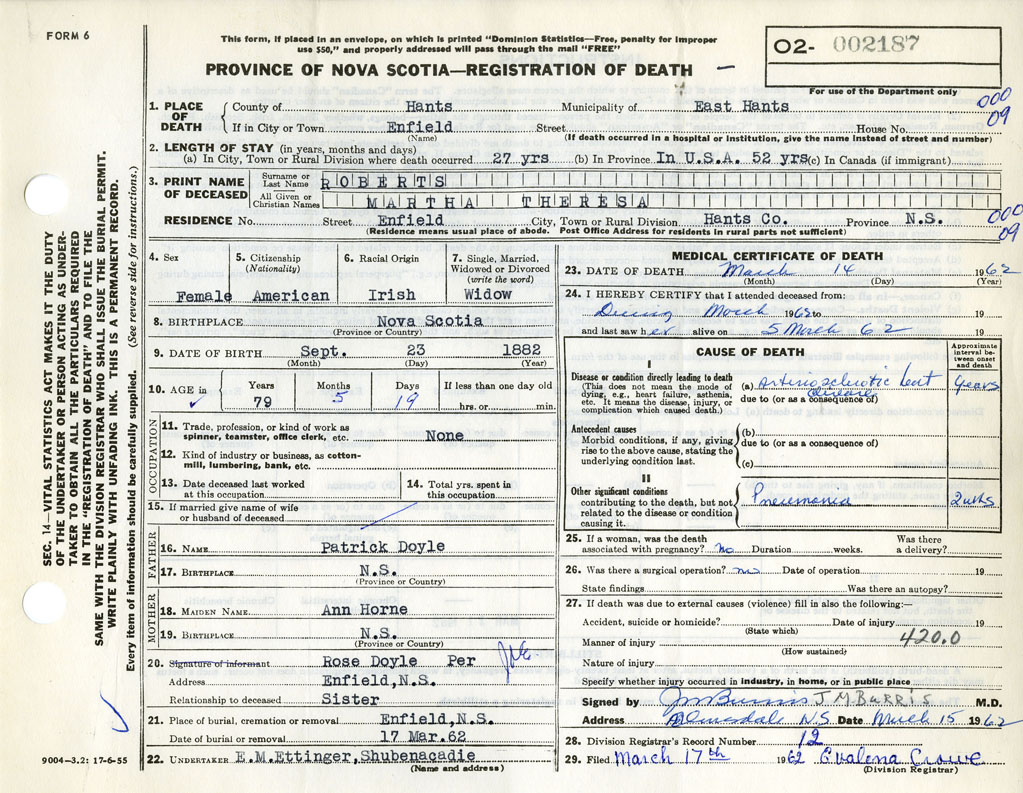 FORM 6
This form, if placed in an envelope, on which is printed "Dominion Statistics—Free, penalty for improper
use $50," and properly addressed will pass through the mail "FREE"
O2- 002187
PROVINCE OF NOVA SCOTIA—REGISTRATION OF DEATH
For use of the Department only
1. PLACE OF DEATH County of Hants Municipality of East Hants
000
09
If in City or Town Enfield Street House No.
(Name) (If death occurred in a hospital or institution, give the name instead of street and number)
2. LENGTH OF STAY (in years, months and days)
(a) In City, Town or Rural Division where death occurred 27 yrs (b) In Province In U.S.A. 52 yrs (c) In Canada (if immigrant)
3. PRINT NAME OF DECEASED
Surname or Last Name ROBERTS
All Given or Christian Names MARTHA THERESA
RESIDENCE No. Street Enfield City, Town or Rural Division Hants Co. Province N.S.
000
09
(Residence means usual place of abode. Post Office Address for residents in rural parts not sufficient)
4. Sex
Female
5. Citizenship
(Nationality)
American
6. Racial Origin
Irish
7. Single, Married,
Widowed or Divorced
(write the word)
Widow
8. BIRTHPLACE Nova Scotia
(Province or Country)
9. DATE OF BIRTH Sept. 23 1882
(Month) (Day) (Year)
10. AGE in Years Months Days If less than one day old
79 5 19 hrs. or min.
OCCUPATION
11. Trade, profession, or kind of work as
spinner, teamster, office clerk, etc. None
12. Kind of industry or business, as cotton-
mill, lumbering, bank, etc.
13. Date deceased last worked
at this occupation
14. Total yrs. spent in
this occupation
15. If married give name of wife
or husband of deceased
FATHER
16. NAME Patrick Doyle
17. BIRTHPLACE N.S.
(Province or Country)
MOTHER
18. MAIDEN NAME Ann Horne
19. BIRTHPLACE N.S.
(Province or Country)
20. Signature of informant Rose Doyle Per
Address Enfield, N.S.
Relationship to deceased Sister
21. Place of burial, cremation or removal Enfield, N.S.
Date of burial or removal 17 Mar. 62
22. UNDERTAKER E.M.Ettinger, Shubenacadie
(Name and address)
MEDICAL CERTIFICATE OF DEATH
23. DATE OF DEATH March 14 1962
(Month) (Day) (Year)
24. I HEREBY CERTIFY that I attended deceased from:
During March 1962 to 19
and last saw her alive on 5 March 62 19
CAUSE OF DEATH
Approximate
interval be-
tween onset
and death
I
Disease or condition directly leading to death
(This does not mean the mode of
dying, e.g., heart failure, asthenia,
etc. It means the disease, injury, or
complication which caused death.)
(a) Arteriosclerotic heart disease years
due to (or as a consequence of)
Antecedent causes
Morbid conditions, if any, giving
rise to the above cause, stating the
underlying condition last.
(b)
due to (or as a consequence of)
(c)
II
Other significant conditions
contributing to the death, but not
related to the disease or condition
causing it.
Pneumonia 2 wks
25. If a woman, was the death
associated with pregnancy? no Duration weeks. Was there
a delivery?
26. Was there a surgical operation? no Date of operation 19
State findings Was there an autopsy?
27. If death was due to external causes (violence) fill in also the following:—
Accident, suicide or homicide? Date of injury 19
(State which)
Manner of injury 420.0
(How sustained)
Nature of injury
Specify whether injury occurred in industry, in home, or in public place
Signed by J M Burris J M BURRIS M.D.
Address Elmsdale N.S Date March 15 1962
28. Division Registrar's Record Number 12
29. Filed March 17th 1962 Evalena Crowe
(Division Registrar)
SEC. 14—VITAL STATISTICS ACT MAKES IT THE DUTY
OF THE UNDERTAKER OR PERSON ACTING AS UNDER-
TAKER TO OBTAIN ALL THE PARTICULARS REQUIRED
IN THE "REGISTRATION OF DEATH" AND TO FILE THE
SAME WITH THE DIVISION REGISTRAR WHO SHALL ISSUE THE BURIAL PERMIT.
WRITE PLAINLY WITH UNFADING INK. THIS IS A PERMANENT RECORD.
Every item of information should be carefully supplied. (See reverse side for instructions.)
9004—3.2: 17-6-55